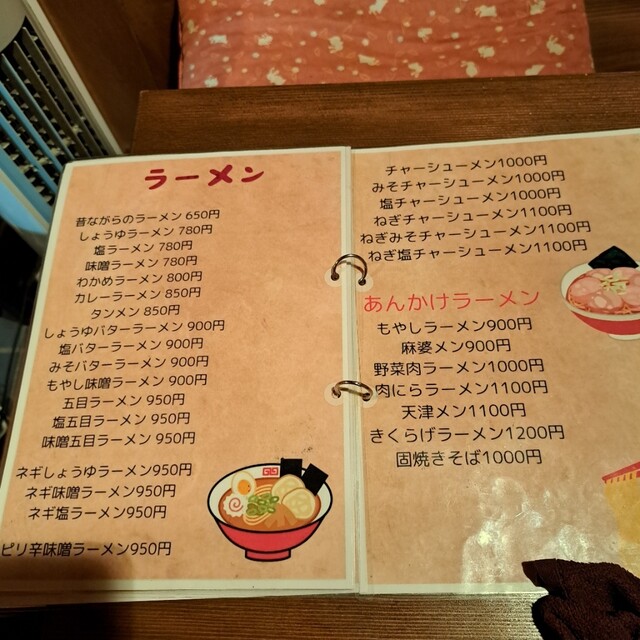 ラーメン
昔ながらのラーメン 650円
しょうゆラーメン 780円
塩ラーメン 780円
味噌ラーメン 780円
わかめラーメン 800円
カレーラーメン 850円
タンメン 850円
しょうゆバターラーメン 900円
塩バターラーメン 900円
みそバターラーメン 900円
もやし味噌ラーメン 900円
五目ラーメン 950円
塩五目ラーメン 950円
味噌五目ラーメン 950円
ネギしょうゆラーメン950円
ネギ味噌ラーメン950円
ネギ塩ラーメン950円
ピリ辛味噌ラーメン950円
チャーシューメン1000円
みそチャーシューメン1000円
塩チャーシューメン1000円
ねぎチャーシューメン1100円
ねぎみそチャーシューメン1100円
ねぎ塩チャーシューメン1100円
あんかけラーメン
もやしラーメン900円
麻婆メン900円
野菜肉ラーメン1000円
肉にらラーメン1100円
天津メン1100円
きくらげラーメン1200円
固焼きそば1000円